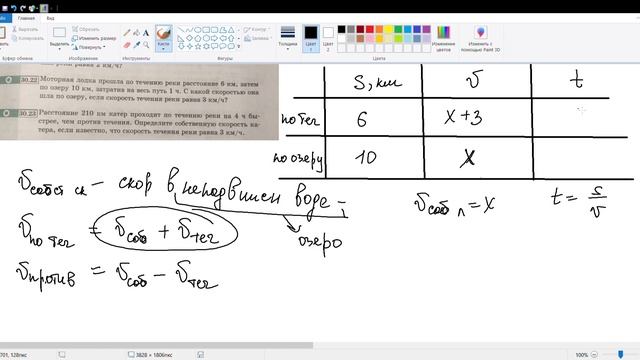 Вырезать
Копировать
Выделить
Обрезать
Изменить размер
Повернуть
Кисти
Толщина
Цвет 1
Цвет 2
Изменение цветов
Изменить с помощью Paint 3D
Буфер обмена
Изображение
Инструменты
Фигуры
Цвета
30.22 Моторная лодка прошла по течению реки расстояние 6 км, затем
по озеру 10 км, затратив на весь путь 1 ч. С какой скоростью она
шла по озеру, если скорость течения реки равна 3 км/ч?
30.23 Расстояние 210 км катер проходит по течению реки на 4 ч бы-
стрее, чем против течения. Определите собственную скорость ка-
тера, если известно, что скорость течения реки равна 3 км/ч.
S, км v t
по теч 6 x+3
по озеру 10 x
v собст ск – скор в неподвижн воде –
озеро
v по теч = v соб + v теч
v против = v соб – v теч
v соб л = x t = s/v
701, 128пкс
3828 × 1806пкс
100%